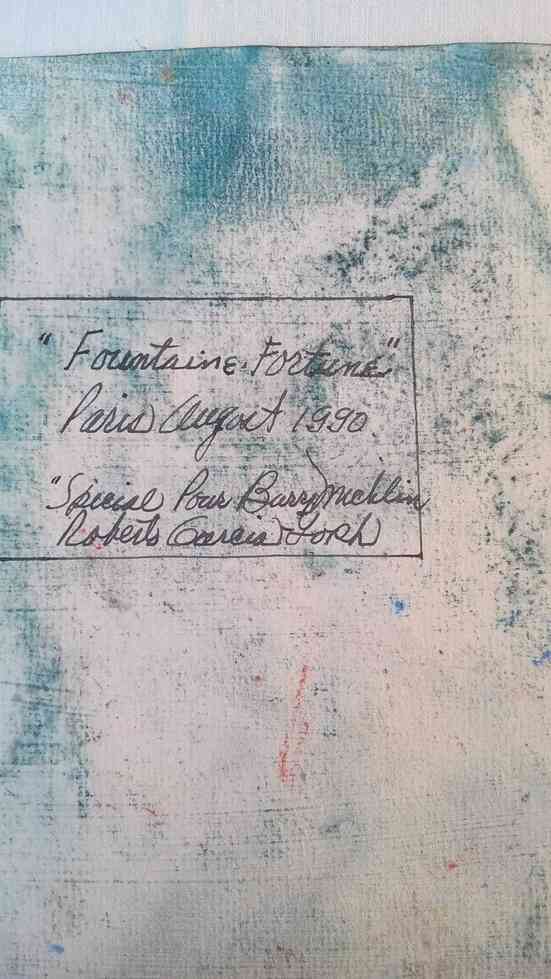 "Fountaine Fortune"
Paris August 1990
"Special Pour Barry
Roberto Garcia York